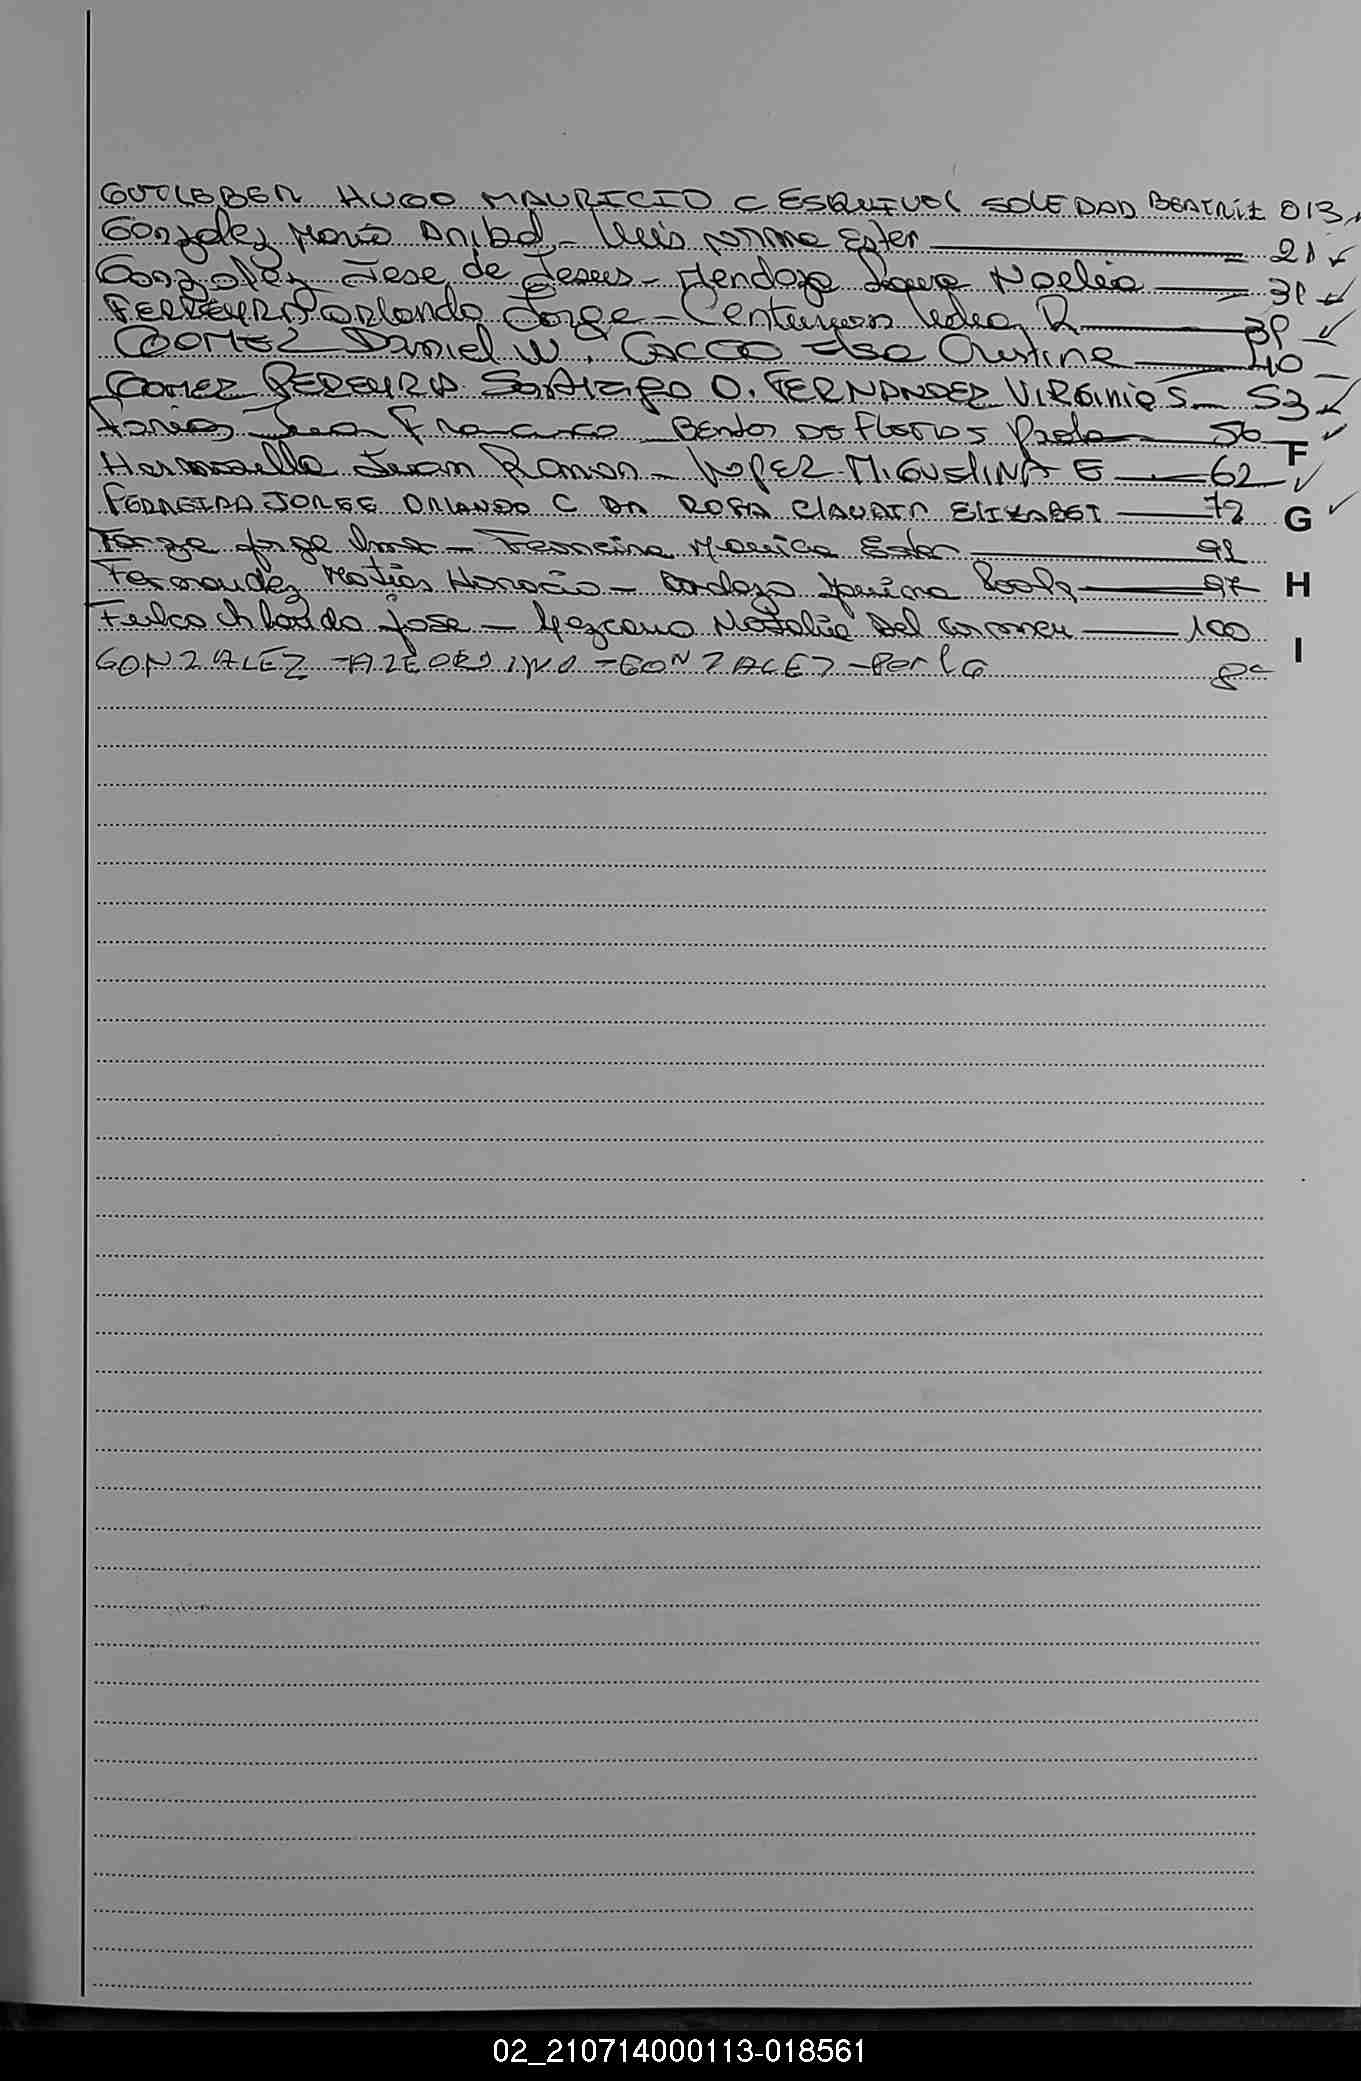 GOTLEBER HUGO MAURICIO C ESQUIVEL SOLEDAD BEATRIZ 013
Gonzalez Mario Anibal - Luis Norma Ester 21
Gonzalez Jose de Jesus - Mendoza Laura Noelia 31
FERREYRA Orlando Jorge - Centurion Lidia R 39
GOMEZ Daniel W. Cristina 40
GOMEZ PEREYRA Santiago O. FERNANDEZ VIRGINIA S 53
Farias Juan Francisco Bentos 56
Juan Ramon - LOPEZ MIGUELINA E 62
FERREIRA JORGE ORLANDO C DA ROSA CLAUDIA ELIZABET 72
Jorge Omar - Ferreira Monica Ester 91
Fernandez Matias Horacio - Cardozo Yanina 97
Jose - Lezcano Natalia Del Carmen 100
GONZALEZ - GONZALEZ - Perla
F
G
H
I
02_210714000113-018561